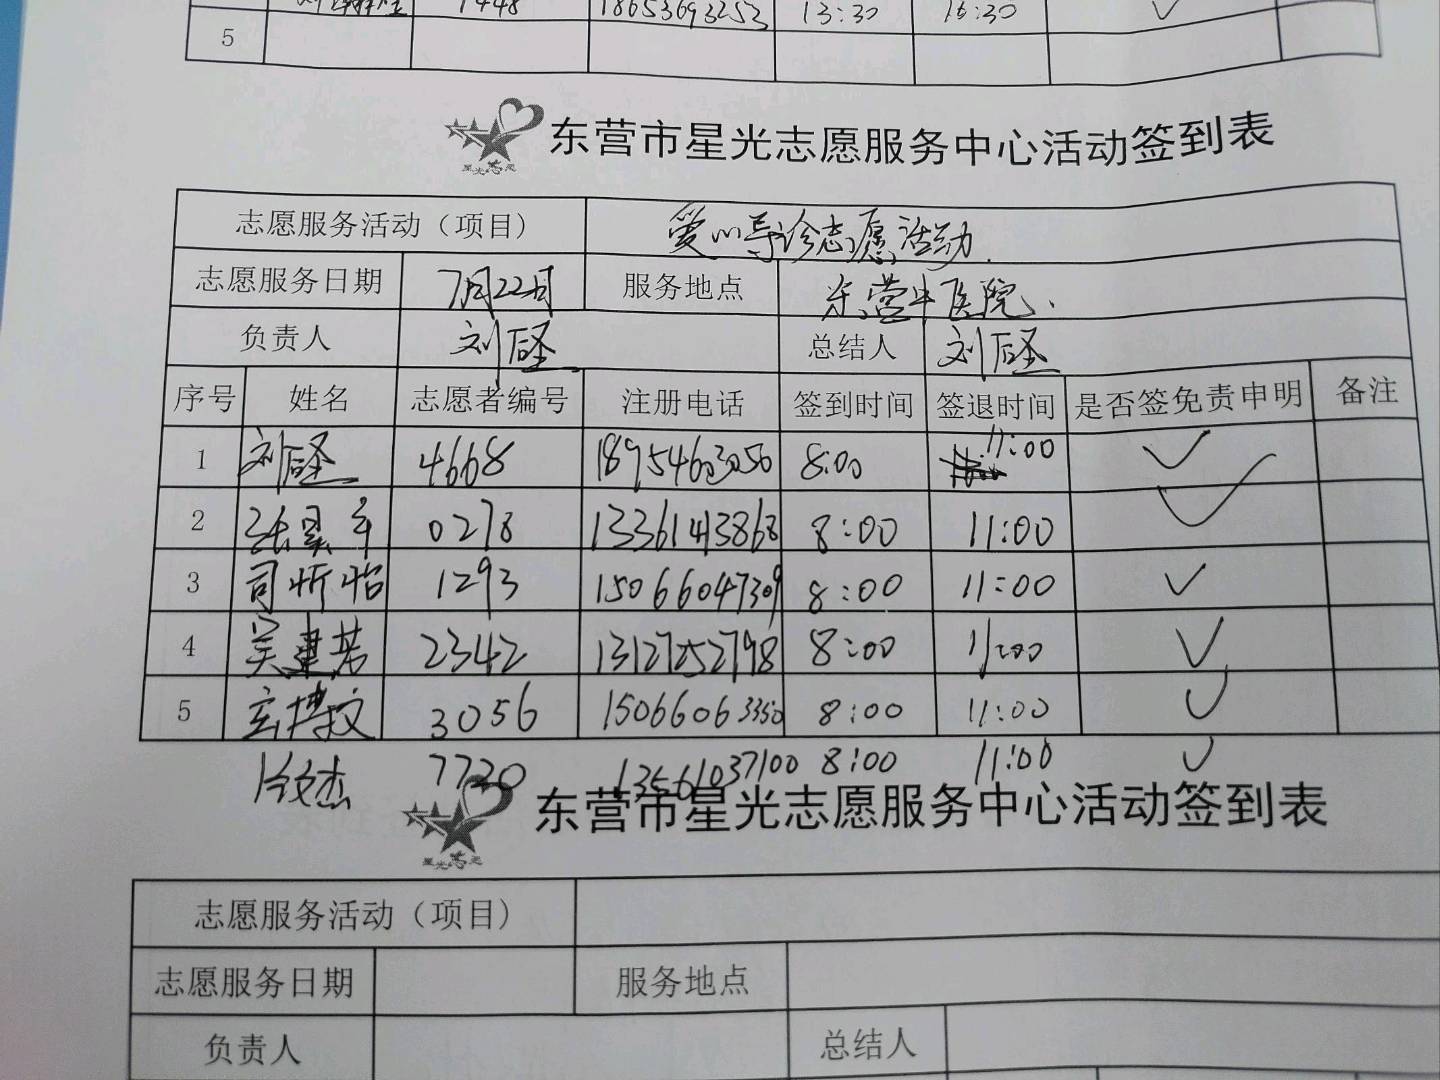 1448 18653693253 13:30 16:30 ✓
5
东营市星光志愿服务中心活动签到表
星光志愿
志愿服务活动（项目） 爱心导诊志愿活动.
志愿服务日期 7月22日 服务地点 东营中医院
负责人 刘 总结人 刘
序号 姓名 志愿者编号 注册电话 签到时间 签退时间 是否签免责申明 备注
1 刘 4668 8:00 11:00 ✓
2 0278 13361413868 8:00 11:00 ✓
3 司忻怡 1293 15066047309 8:00 11:00 ✓
4 吴建芳 2342 13127252798 8:00 11:00 ✓
5 玄博文 3056 15066063350 8:00 11:00 ✓
文杰 7720 13561037100 8:00 11:00 ✓
东营市星光志愿服务中心活动签到表
星光志愿
志愿服务活动（项目）
志愿服务日期 服务地点
负责人 总结人